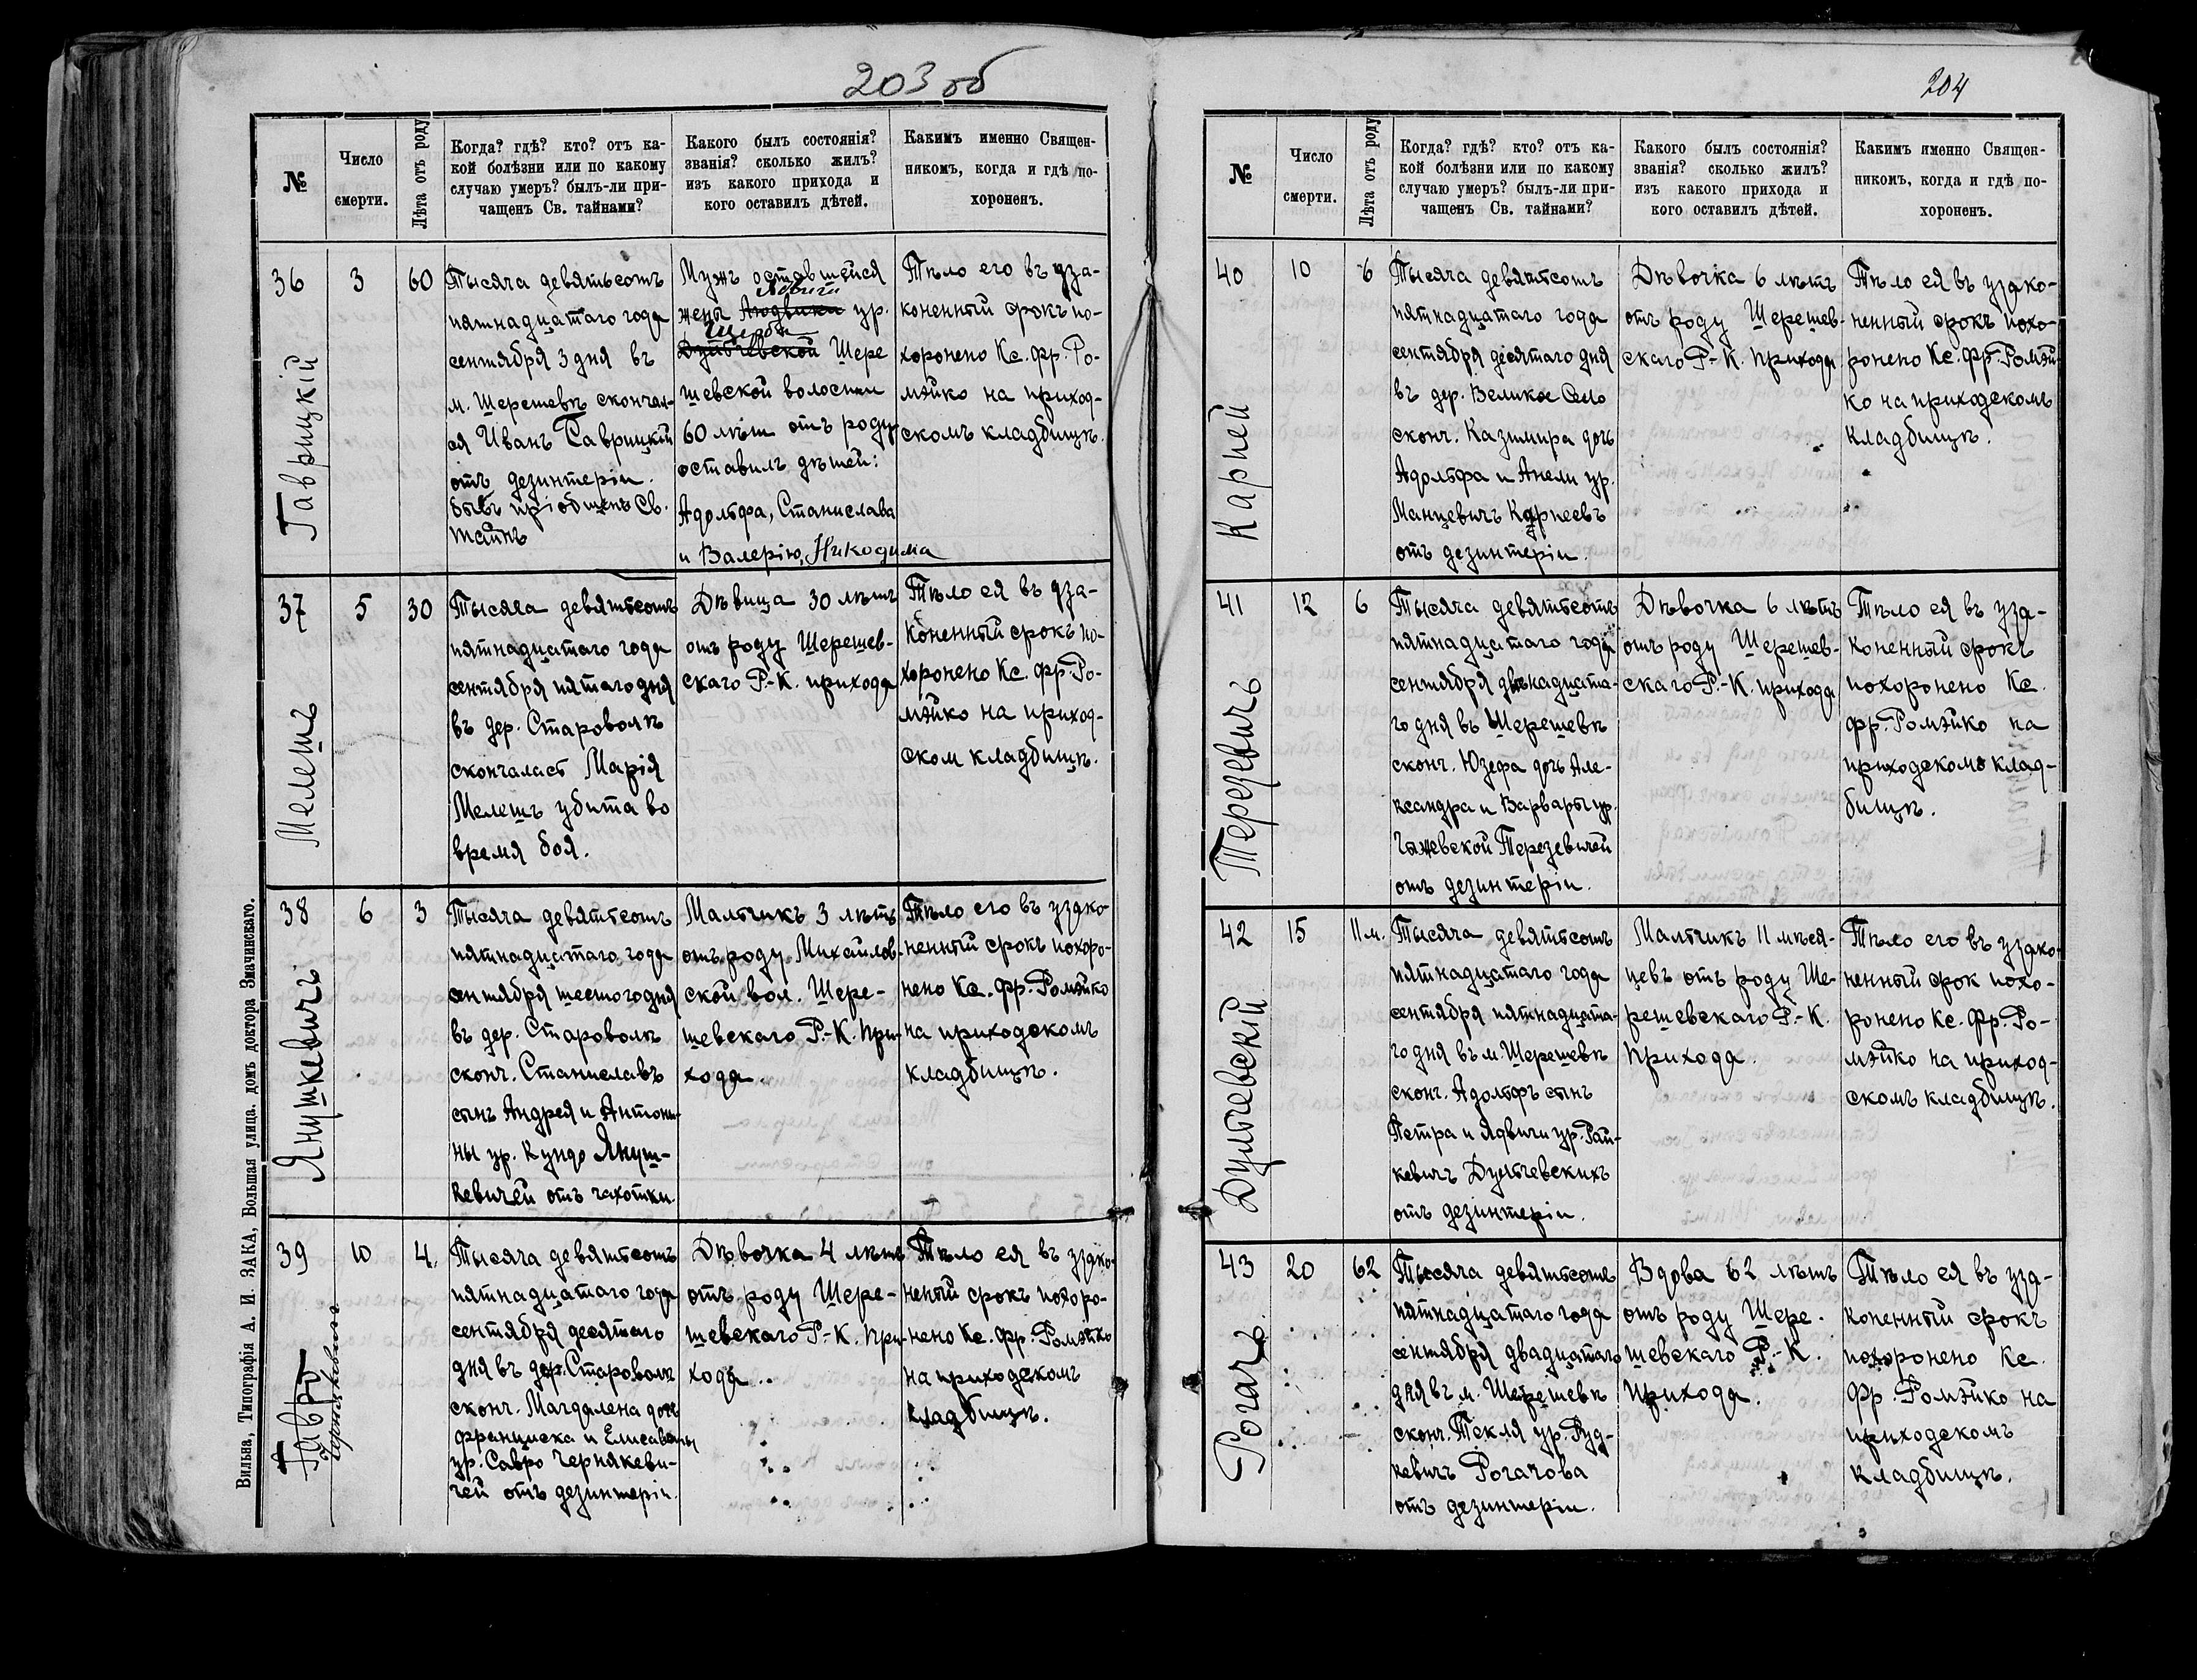 203 об
№
Число
смерти.
Лѣта отъ роду
Когда? гдѣ? кто? отъ ка-
кой болѣзни или по какому
случаю умеръ? былъ-ли при-
чащенъ Св. тайнами?
Какого былъ состоянія?
званія? сколько жилъ?
изъ какого прихода и
кого оставилъ дѣтей.
Какимъ именно Священ-
никомъ, когда и гдѣ по-
хороненъ.
36
Гаврицкій
3
60
Тысяча девятьсотъ
пятнадцатаго года
сентября 3 дня въ
м. Шерешевѣ скончал-
ся Иванъ Гаврицкій
отъ дезинтеріи.
бывъ пріобщенъ Св.
тайнъ
Мужъ оставшейся
Ядвиги
жены Людвики ур.
Дульчевской Шере
шевской волости
60 лѣт отъ роду
оставилъ дѣтей:
Адольфа, Станислава
и Валерію, Никодима
Тѣло его въ уза-
коненный срокъ по-
хоронено Кс. Фр. Ро-
мэйко на приход-
скомъ кладбищѣ.
37
Мелешъ
5
30
Тысяча девятьсотъ
пятнадцатаго года
сентября пятаго дня
въ дер. Староволѣ
скончалась Марія
Мелешъ убита во
время боя.
Дѣвица 30 лѣтъ
отъ роду Шерешев-
скаго Р.-К. прихода
Тѣло ея въ уза-
коненный срокъ по-
хоронено Кс. Фр. Ро-
мэйко на приход-
ском кладбищѣ.
38
Янушкевичъ
6
3
Тысяча девятьсотъ
пятнадцатаго года
сентября шестого дня
въ дер. Староволѣ
сконч. Станиславъ
сынъ Андрея и Антони-
ны ур. Кундо Януш-
кевичей отъ чахотки.
Мальчикъ 3 лѣтъ
отъ роду Михайлов-
ской вол. Шере-
шевскаго Р.-К. При-
хода.
Тѣло его въ узако-
ненный срокъ похоро-
нено Кс. Фр. Ромэйко
на приходскомъ
кладбищѣ.
39
Гавро
Чернякевичъ
10
4
Тысяча девятьсотъ
пятнадцатаго года
сентября десятаго
дня въ дер. Староволѣ
сконч. Магдалена дочь
Франциска и Елисаветы
ур. Савро Чернякеви-
чей отъ дезинтеріи.
Дѣвочка 4 лѣтъ
отъ роду Шере-
шевскаго Р.-К. При-
хода.
Тѣло ея въ узако-
неный срокъ похоро-
нено Кс. Фр. Ромэйко
на приходскомъ
кладбищѣ.
Вильна, Типографія А. И. ЗАКА, Большая улица. домъ доктора Змачинскаго.
204
№
Число
смерти.
Лѣта отъ роду
Когда? гдѣ? кто? отъ ка-
кой болѣзни или по какому
случаю умеръ? былъ-ли при-
чащенъ Св. тайнами?
Какого былъ состоянія?
званія? сколько жилъ?
изъ какого прихода и
кого оставилъ дѣтей.
Какимъ именно Священ-
никомъ, когда и гдѣ по-
хороненъ.
40
Карпей
10
6
Тысяча девятьсотъ
пятнадцатаго года
сентября десятаго дня
въ дер. Великое Село
сконч. Казимира дочь
Адольфа и Анели ур.
Манцевичъ Карпеевъ
отъ дезинтеріи.
Дѣвочка 6 лѣтъ
отъ роду Шерешев-
скаго Р.-К. прихода
Тѣло ея въ узако-
ненный срокъ похо-
ронено Кс. Фр. Ромэй-
ко на приходскомъ
кладбищѣ.
41
Терезевичъ
12
6
Тысяча девятьсотъ
пятнадцатаго года
сентября двѣнадцата-
го дня въ Шерешевѣ
сконч. Юзефа дочь Але-
ксандра и Варвары ур.
Чажевской Терезевичей
отъ дезинтеріи.
Дѣвочка 6 лѣтъ
отъ роду Шерешев-
скаго Р.-К. прихода
Тѣло ея въ уза-
коненный срокъ
похоронено Кс.
Фр. Ромэйко на
приходскомъ клад-
бищѣ.
42
Дульчевскій
15
11 м.
Тысяча девятьсотъ
пятнадцатаго года
сентября пятнадцата-
го дня въ м. Шерешевѣ
сконч. Адольфъ сынъ
Петра и Ядвиги ур. Рай-
кевичъ Дульчевскихъ
отъ дезинтеріи.
Мальчикъ 11 мѣся-
цевъ отъ роду Ше-
решевскаго Р.-К.
Прихода.
Тѣло его въ узако-
ненный срок похо-
ронено Кс. Фр. Ро-
мэйко на приход-
скомъ кладбищѣ.
43
Рогачъ
20
62
Тысяча девятьсотъ
пятнадцатаго года
сентября двадцатаго
дня въ м. Шерешевѣ
сконч. Текля ур. Руд-
кевичъ Рогачова
отъ дезинтеріи.
Вдова 62 лѣтъ
отъ роду Шере-
шевскаго Р.-К.
Прихода.
Тѣло ея въ уза-
коненный срокъ
похоронено Кс.
Фр. Ромэйко на
приходскомъ
кладбищѣ.